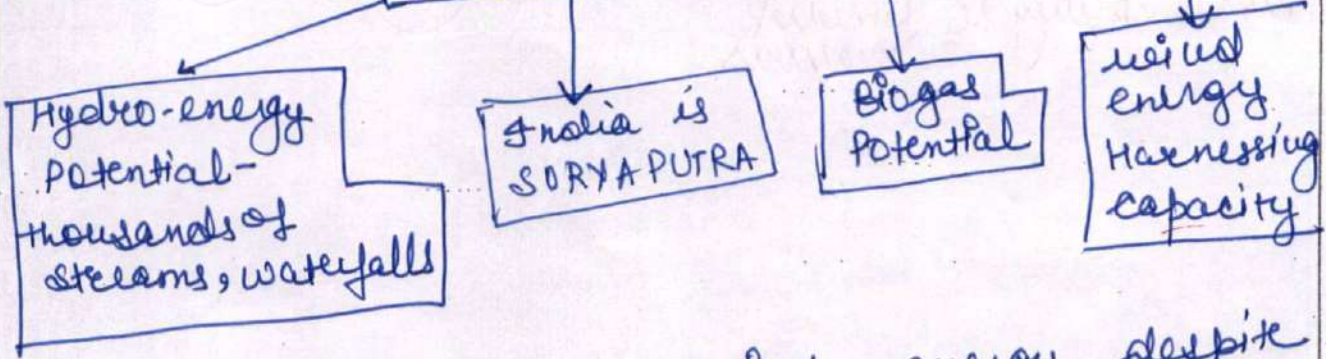 Hydro-energy
Potential-
thousands of
streams, waterfalls
India is
SURYAPUTRA
Biogas
Potential
wind
energy
Harnessing
capacity
energy despite